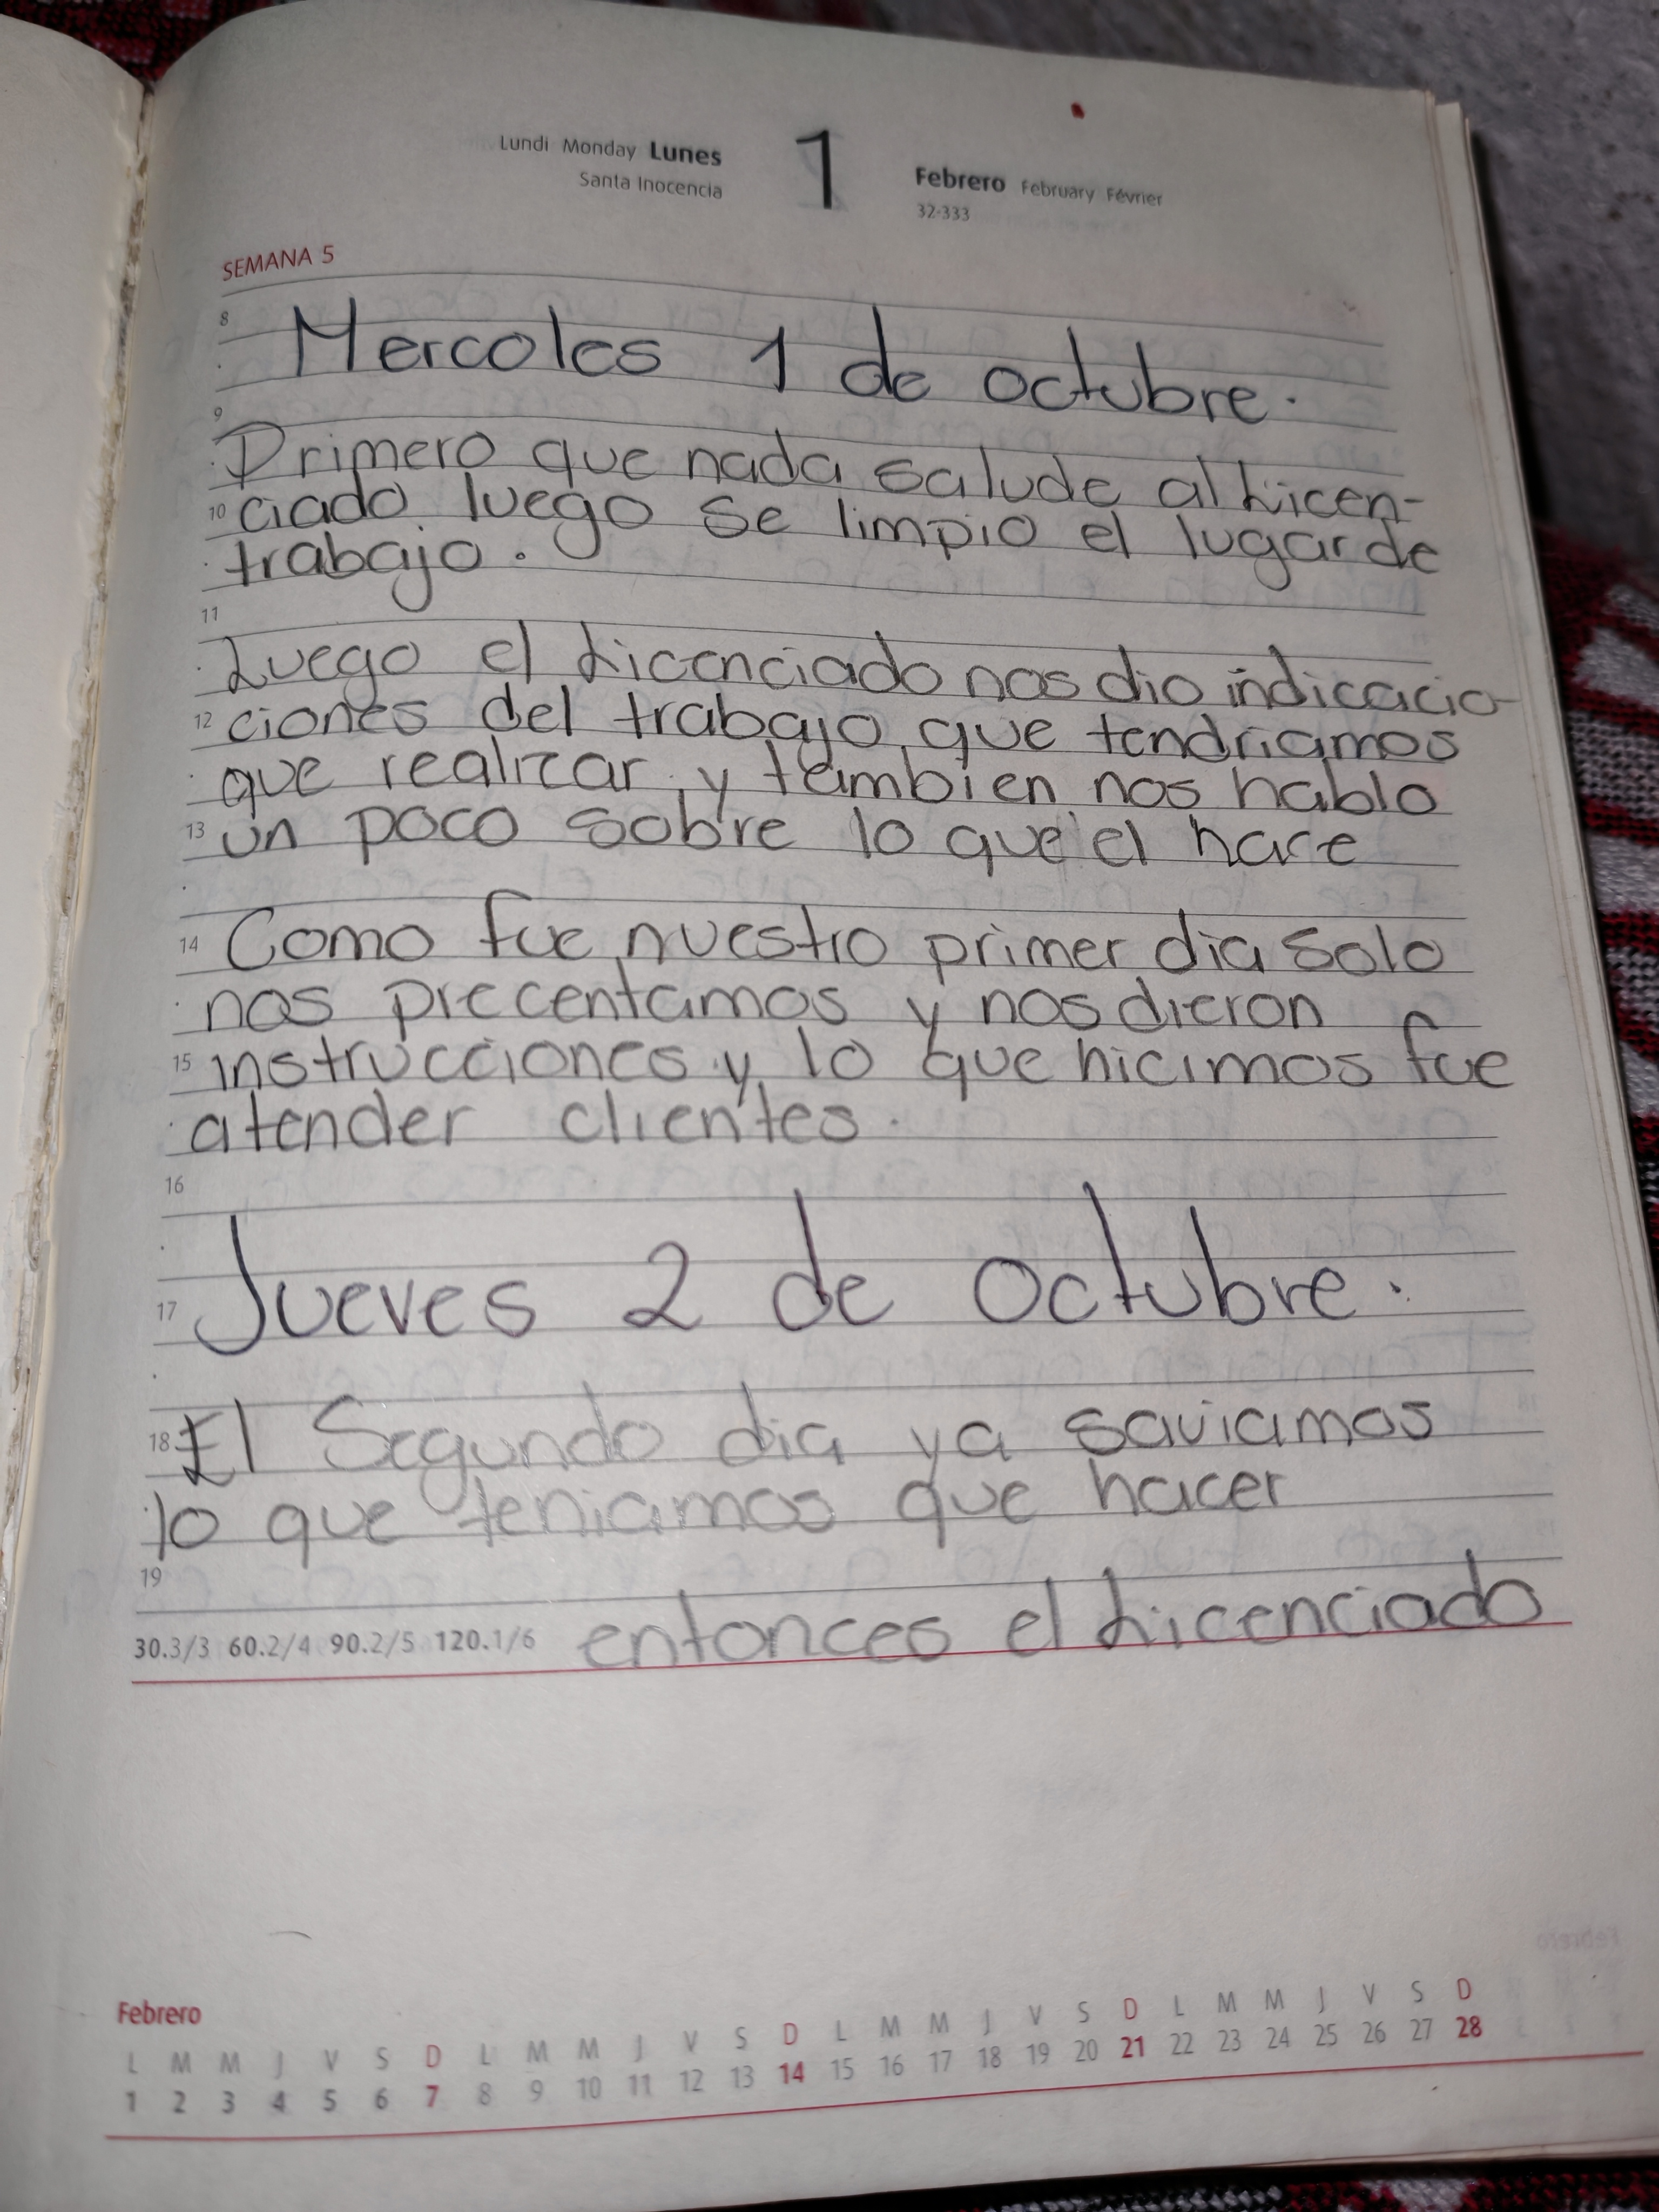 Lundi Monday Lunes 1 Febrero February Février
Santa Inocencia 32-333
SEMANA 5
8
Mercoles 1 de octubre.
9
Primero que nada salude al Licen-
10 ciado luego se limpio el lugar de
trabajo.
11
Luego el Licenciado nos dio indicacio-
12 ciones del trabajo, que tendriamos
que realizar, y tambien nos hablo
13 un poco sobre lo que el hace
14 Como fue nuestro primer dia solo
nos precentamos y nos dieron
15 instrucciones y lo que hicimos fue
atender clientes.
16
17 Jueves 2 de Octubre.
18 El Segundo dia ya saviamos
lo que teniamos que hacer
19
30.3/3 60.2/4 90.2/5 120.1/6 entonces el Licenciado
Febrero
L M M J V S D L M M J V S D L M M J V S D L M M J V S D
1 2 3 4 5 6 7 8 9 10 11 12 13 14 15 16 17 18 19 20 21 22 23 24 25 26 27 28